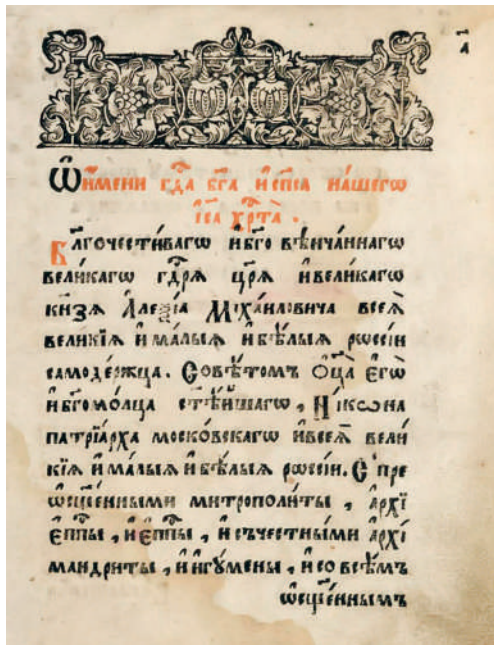 а҃
Ѡ҆ и҆́мени гдⷭ҇а бг҃а и҆ сп҃са на́шегѡ
і҆и҃са хрⷭ҇та̀ .
Бл҃гочести́вагѡ и҆ бг҃о вѣнча́ннагѡ
вели́кагѡ гдⷭ҇рѧ цр҃ѧ и҆ вели́кагѡ
кнѧ́зѧ А҆леѯі́а Мїха́иловича всеѧ̀
вели́кїѧ и҆ ма́лыѧ и҆ бѣ́лыѧ рѡссі́и
самоде́ржца. Совѣ́томъ Ѻ҆ц҃а̀ є҆гѡ̀
и҆ бг҃омо́лца ст҃ѣ́йшагѡ , Ні́кѡна
патрїа́рха моско́вскагѡ и҆ всеѧ̀ вели́
кїѧ и҆ ма́лыѧ и҆ бѣ́лыѧ рѡссі́и. С̾ пре
ѡ҆сщ҃е́нными митрополи́ты , а҆рхї
є҆пⷭ҇пы , и҆ є҆пⷭ҇пы , и҆ съ че́стными а҆рхї
мандри́ты , и҆ и҆гꙋ́мены , и҆ со всѣ́мъ
ѡ҆сщ҃е́ннымъ